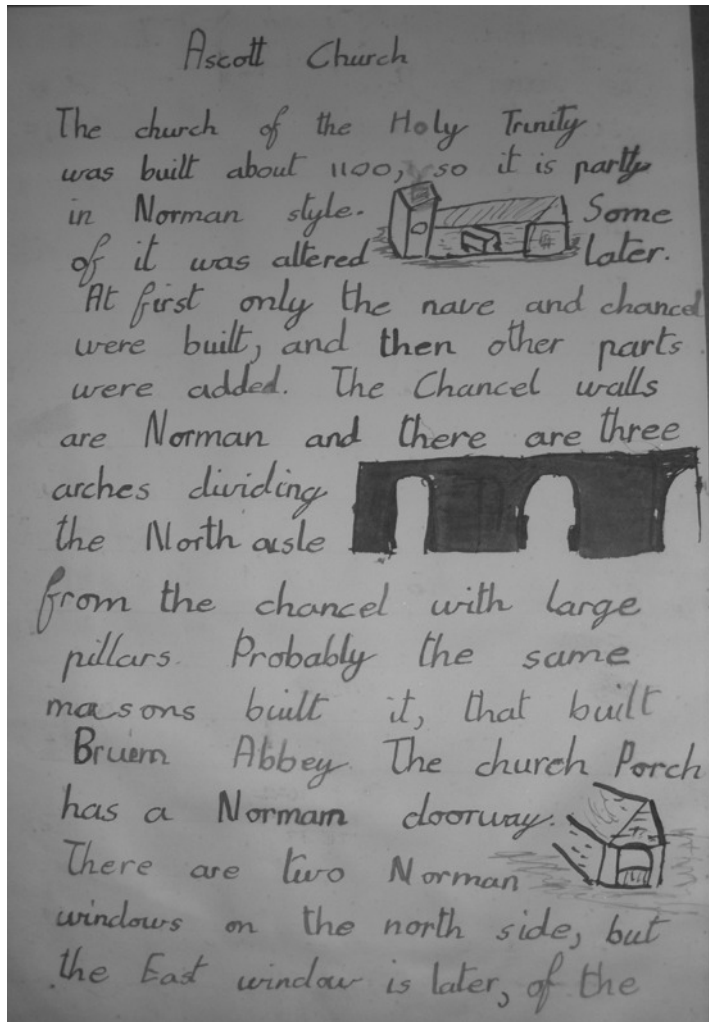 Ascott Church
The church of the Holy Trinity
was built about 1100, so it is partly
in Norman style. Some
of it was altered later.
At first only the nave and chancel
were built, and then other parts
were added. The Chancel walls
are Norman and there are three
arches dividing
the North aisle
from the chancel with large
pillars. Probably the same
masons built it, that built
Bruern Abbey. The church Porch
has a Norman doorway.
There are two Norman
windows on the north side, but
the East window is later, of the